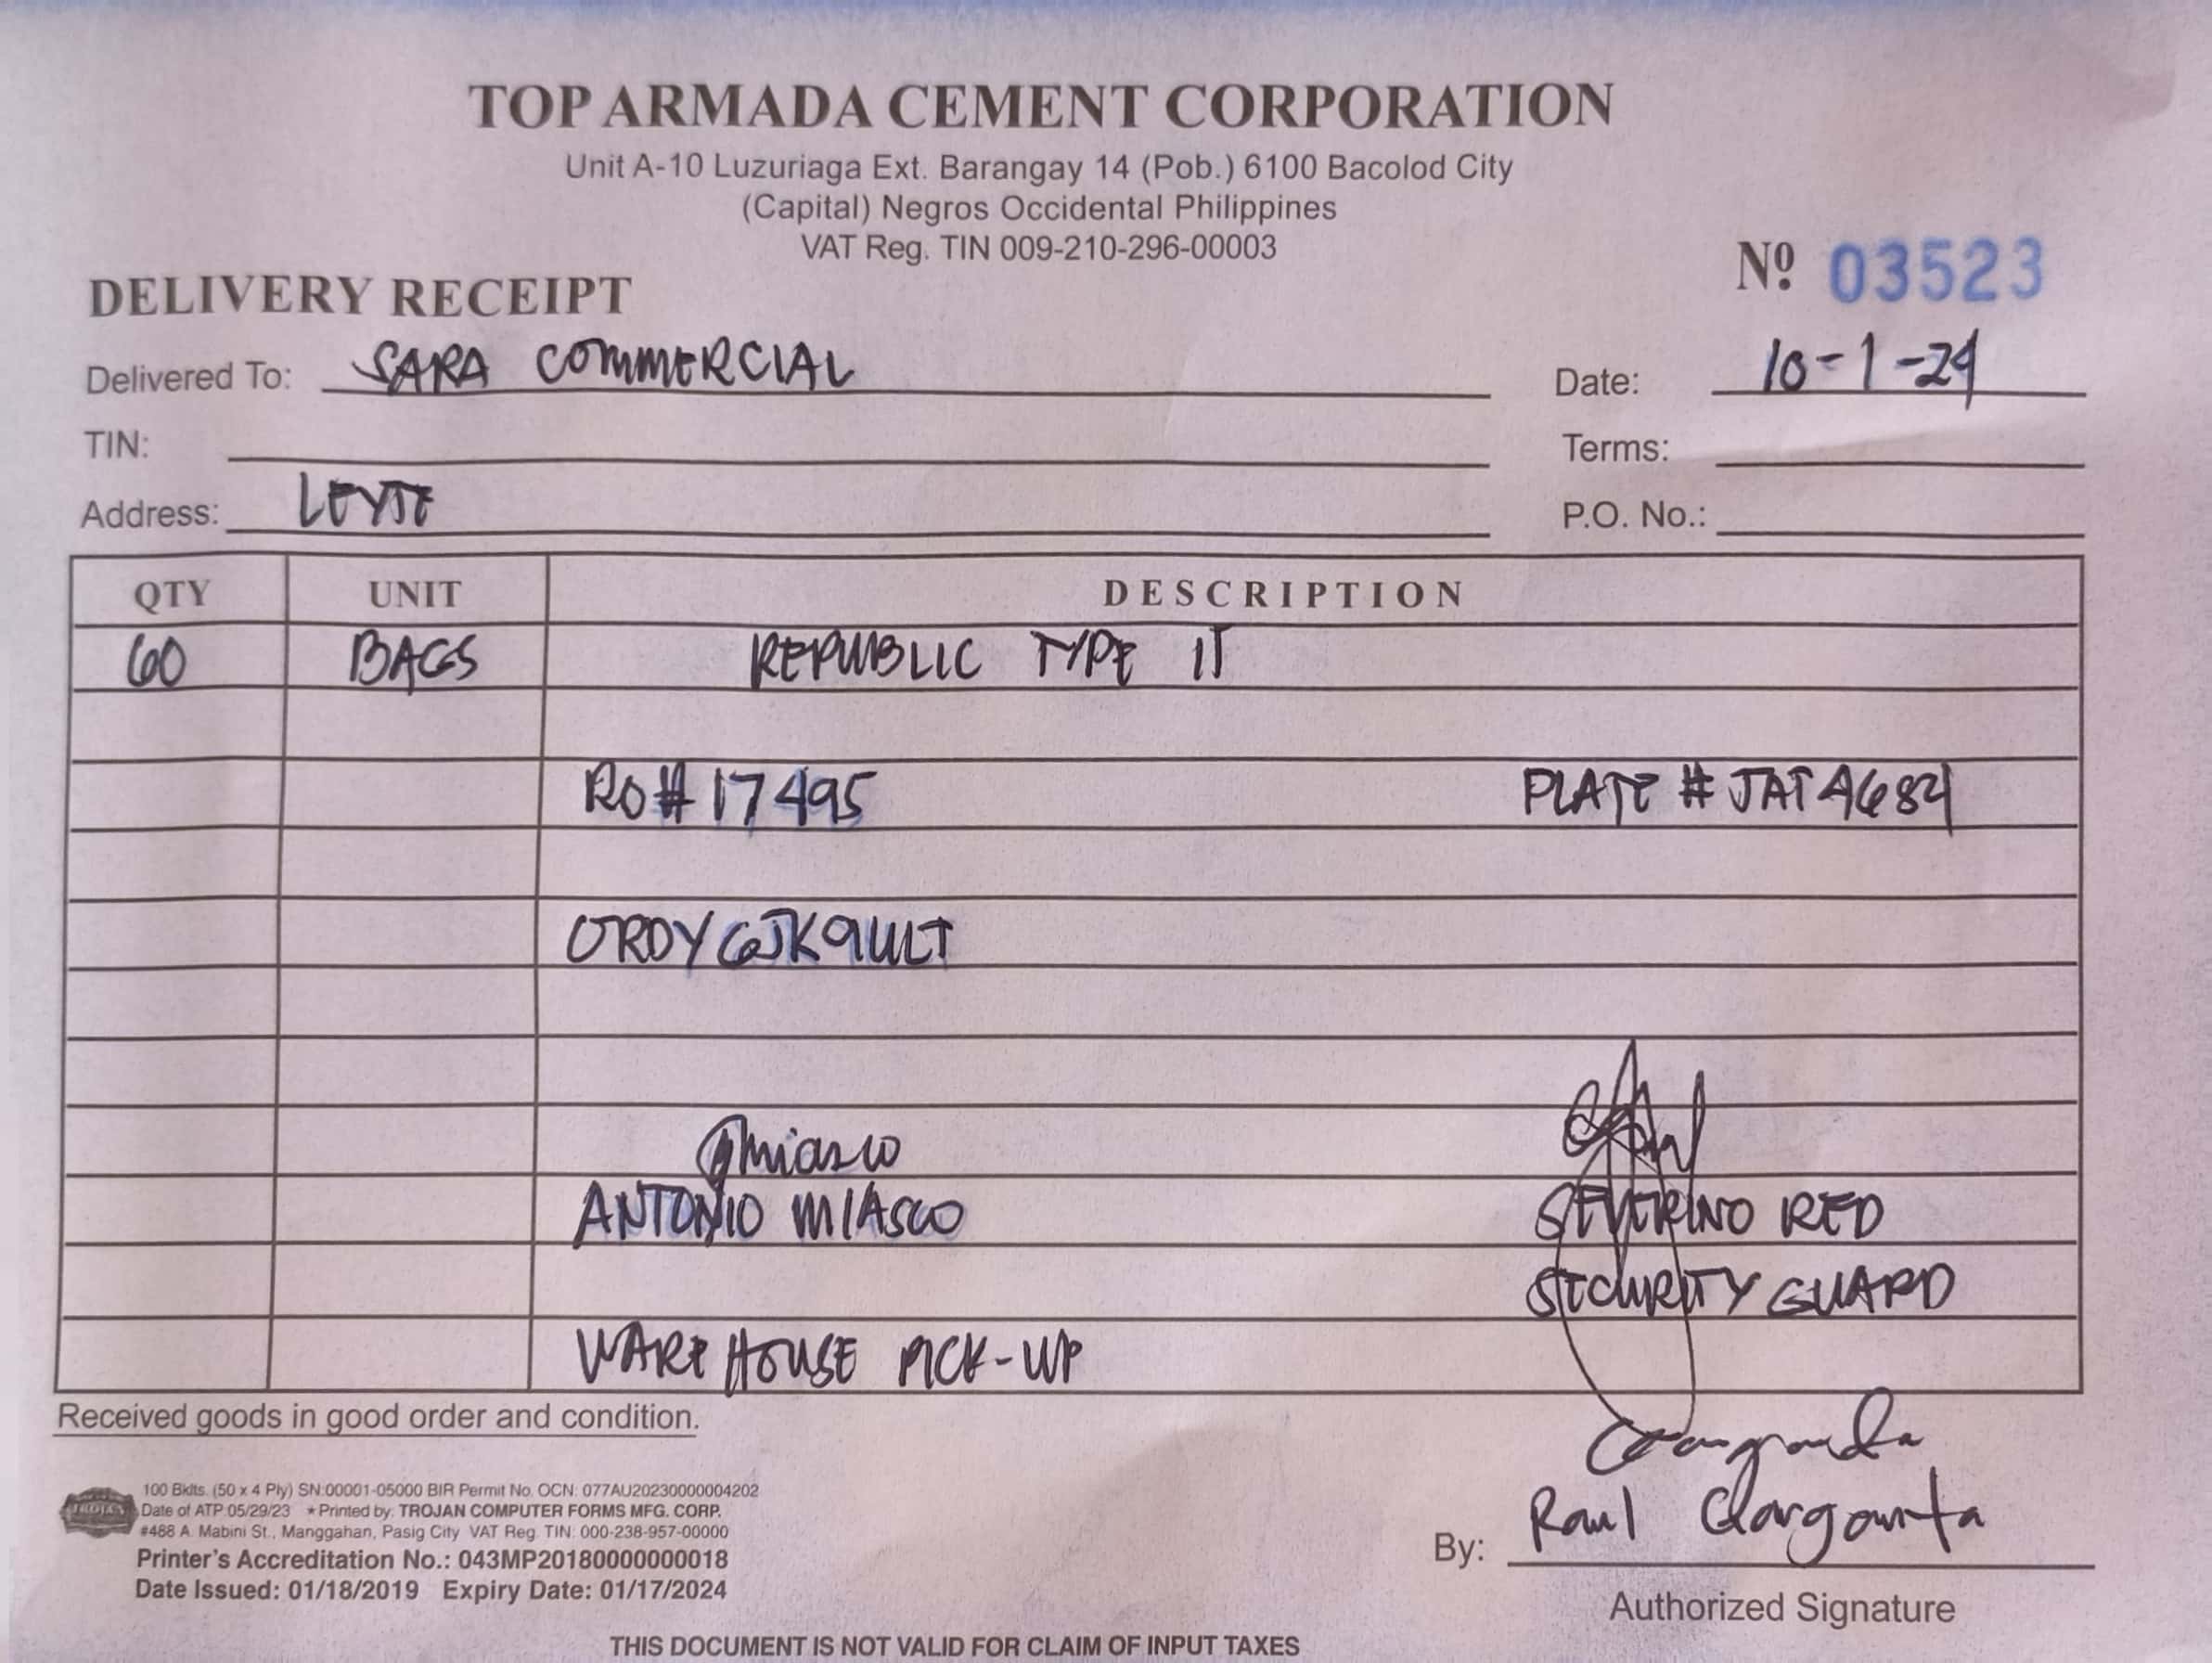 TOP ARMADA CEMENT CORPORATION
Unit A-10 Luzuriaga Ext. Barangay 14 (Pob.) 6100 Bacolod City
(Capital) Negros Occidental Philippines
VAT Reg. TIN 009-210-296-00003
Nº 03523
DELIVERY RECEIPT
Delivered To: SARA COMMERCIAL Date: 10-1-24
TIN: Terms:
Address: LEYTE P.O. No.:
QTY UNIT DESCRIPTION
60 BAGS REPUBLIC TYPE 1T
RO# 17495 PLATE # JAT 4684
ORDYGJK9ULT
Amiasco
ANTONIO MIASCO SEVERINO RED
SECURITY GUARD
WAREHOUSE PICK-UP
Received goods in good order and condition.
100 Bklts. (50 x 4 Ply) SN:00001-05000 BIR Permit No. OCN: 077AU20230000004202
TROJAN Date of ATP 05/29/23 ★Printed by: TROJAN COMPUTER FORMS MFG. CORP.
#488 A. Mabini St., Manggahan, Pasig City VAT Reg. TIN: 000-238-957-00000
Printer's Accreditation No.: 043MP20180000000018
Date Issued: 01/18/2019 Expiry Date: 01/17/2024
By: Raul
Authorized Signature
THIS DOCUMENT IS NOT VALID FOR CLAIM OF INPUT TAXES